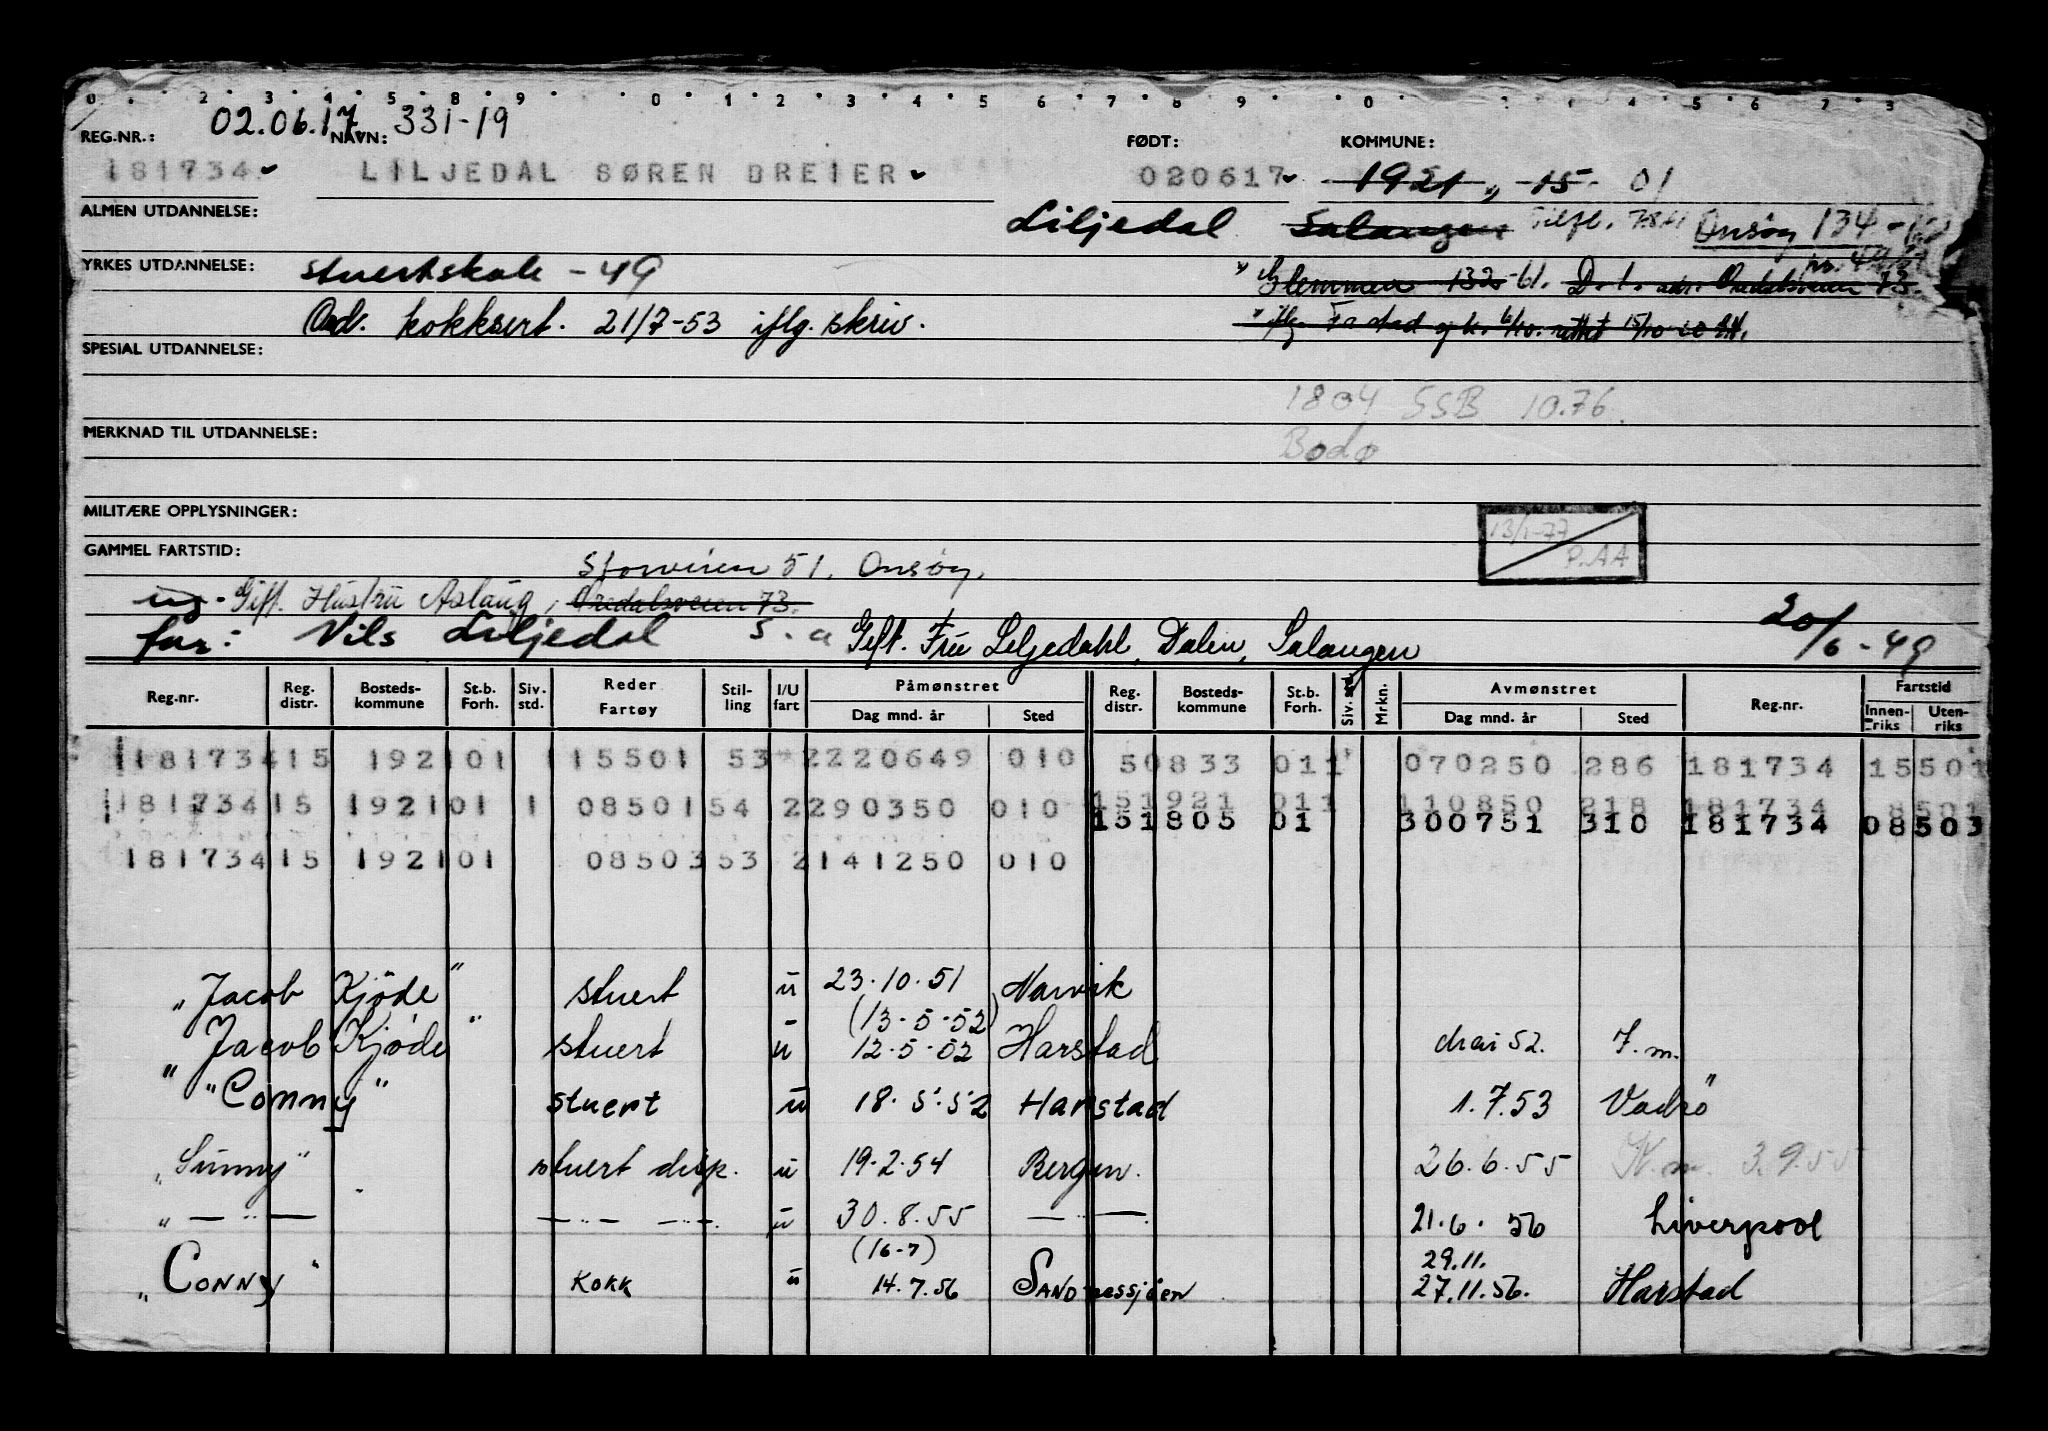 0 . . 2 . 3 . 4 . 5 . 8 . 9 . . . 0 . 1 . 2 . 3 . 4 . 5 6 . 7 . 8 . 9 . . . 0 . . 4 . 5 . 6 . 2 . 3
02.06.17 331-19
REG.NR.: NAVN: FØDT: KOMMUNE:
181734 LILJEDAL SØREN DREIER 020617 1921 " 15 01
ALMEN UTDANNELSE: Liljedal Salangen Tilfl. Onsøy 134
YRKES UTDANNELSE: stuertskole - 49 Glemmen 132 - 61. D.1. adr. Oredalsveien 73.
Ord. kokksert. 21/7-53 iflg. skriv.
SPESIAL UTDANNELSE:
1804 SSB 10.76.
MERKNAD TIL UTDANNELSE: Bodø
MILITÆRE OPPLYSNINGER:
13/1-77 P.AA
GAMMEL FARTSTID:
Storveien 51, Onsøy.
ug. Gift. Hustru Aslaug, Oredalsveien 73.
far: Nils Liljedal s.a Gift. Fru Liljedahl, Dalen, Salangen 20/6-49
Reg.nr. Reg. distr. Bosteds-kommune St.b. Forh. Siv. std. Reder Fartøy Stil-ling I/U fart Påmønstret Dag mnd. år Sted Reg. distr. Bosteds-kommune St.b. Forh. Siv. std. Mrkn. Avmønstret Dag mnd. år Sted Reg.nr. Fartstid Innen-riks Uten-riks
181734 15 1921 01 1 15501 53 2 220649 010 50833 011 070250 286 181734 15501
181734 15 1921 01 1 08501 54 2 290350 010 151921 011 110850 218 181734 8501
151805 01 300751 310 181734 08503
181734 15 1921 01 08503 53 2 141250 010
"Jacob Kjöde" stuert u 23.10.51 Narvik
(13.5.52)
"Jacob Kjøde" stuert u 12.5.52 Harstad mai 52. F.m.
"Conny" stuert u 18.5.52 Harstad 1.7.53 Vadsø
"Sunny" stuert disp. u 19.2.54 Bergen. 26.6.55 3.9.55
" — " — — " — — " —. u 30.8.55 — " — 21.6.56 Liverpool
(16-7) 29.11.
"Conny" Kokk u 14.7.56 Sandnessjøen 27.11.56. Harstad